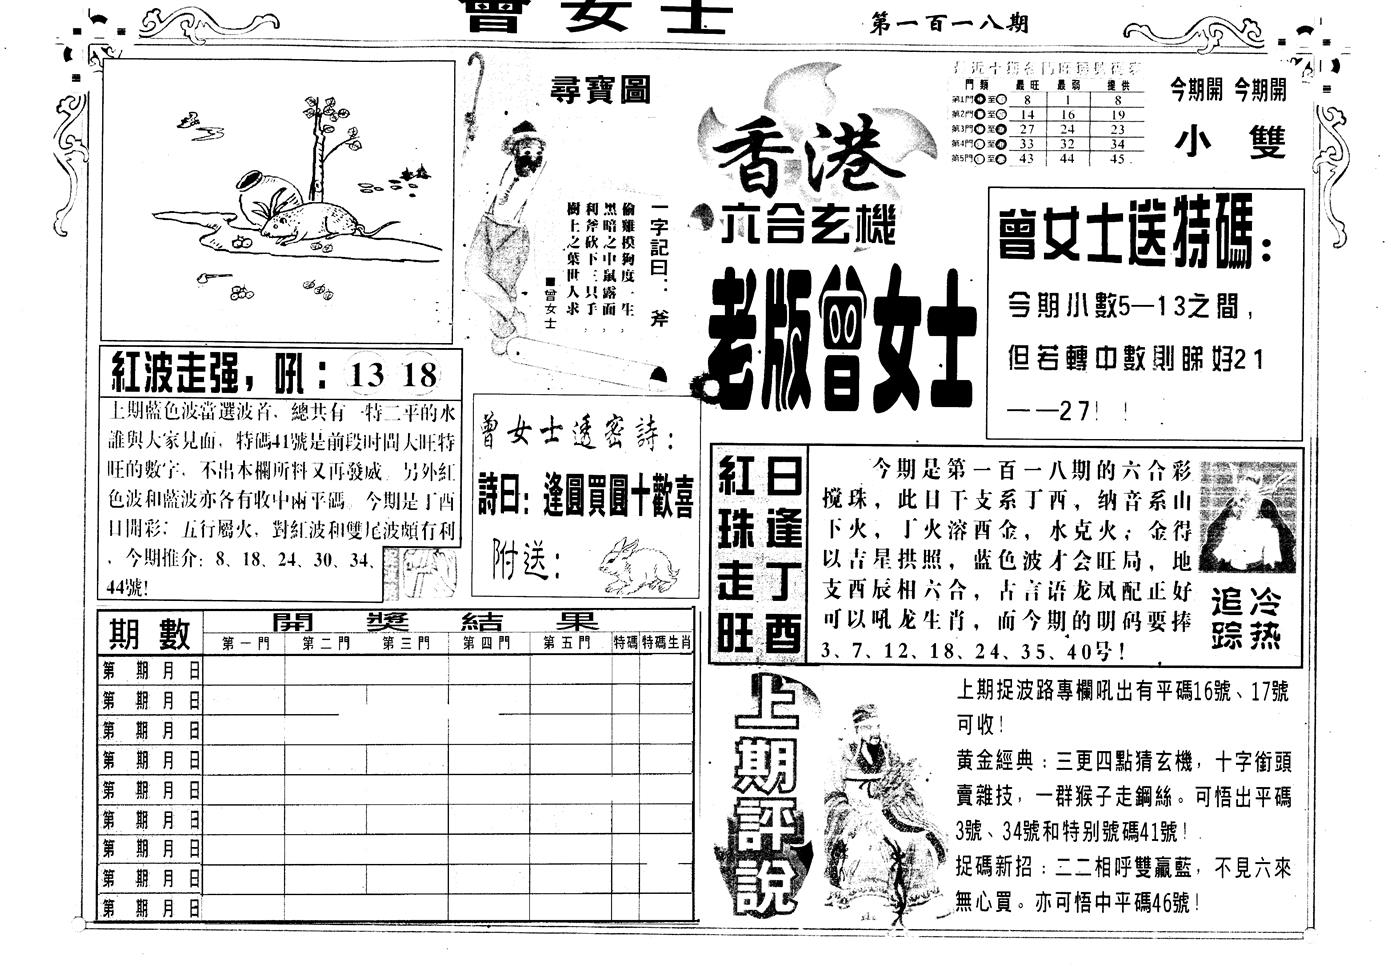 曾女士
第一百一八期
尋寶圖
一字記曰：斧
偷雞摸狗度一生，
黑暗之中鼠露面，
利斧砍下三只手，
樹上之葉世人求
■曾女士
香港
六合玄機
老版曾女士
門類 最旺 最弱 提供
第1門 至 8 1 8
第2門 至 14 16 19
第3門 至 27 24 23
第4門 至 33 32 34
第5門 至 43 44 45
今期開 今期開
小 雙
曾女士送特碼：
今期小數5—13之間，
但若轉中數則睇好21
——27！！
紅波走强，吼：13 18
上期藍色波當選波首，總共有一特二平的水
誰與大家見面，特碼41號是前段时間大旺特
旺的數字，不出本欄所料又再發威，另外紅
色波和藍波亦各有收中兩平碼。今期是丁酉
日開彩；五行屬火，對紅波和雙尾波頗有利
，今期推介：8、18、24、30、34、
44號!
曾女士透密詩：
詩曰：逢圓買圓十歡喜
附送：
紅珠走旺
日逢丁酉
今期是第一百一八期的六合彩
搅珠，此日干支系丁酉，纳音系山
下火，丁火溶酉金，水克火；金得
以吉星拱照，蓝色波才会旺局，地
支酉辰相六合，古言语龙凤配正好
可以吼龙生肖，而今期的明码要捧
3、7、12、18、24、35、40号！
追踪
冷热
期數 開獎結果
第一門 第二門 第三門 第四門 第五門 特碼 特碼生肖
第 期 月 日
第 期 月 日
第 期 月 日
第 期 月 日
第 期 月 日
第 期 月 日
第 期 月 日
第 期 月 日
第 期 月 日
上期評說
上期捉波路專欄吼出有平碼16號、17號
可收！
黄金經典：三更四點猜玄機，十字街頭
賣雜技，一群猴子走鋼絲。可悟出平碼
3號、34號和特别號碼41號！
捉碼新招：二二相呼雙贏藍，不見六來
無心買。亦可悟中平碼46號！